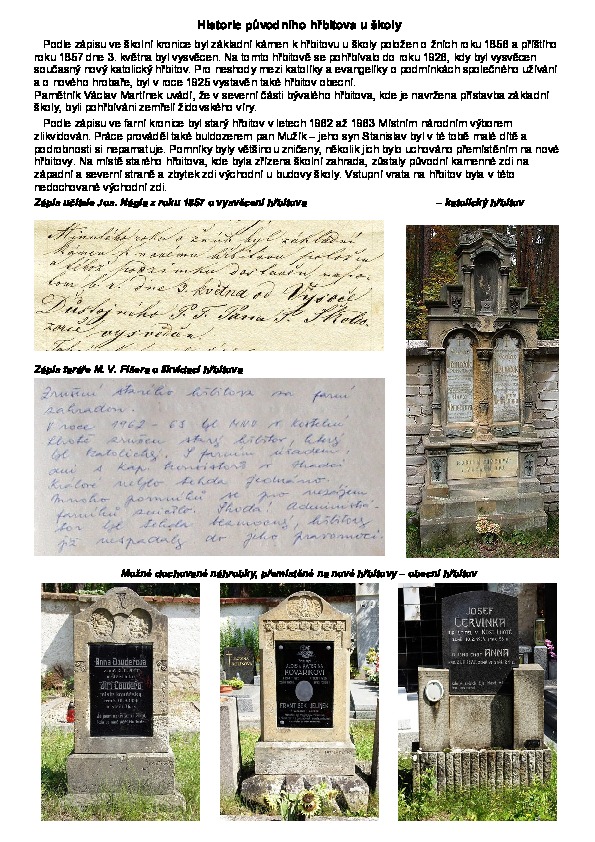 Historie původního hřbitova u školy
Podle zápisu ve školní kronice byl základní kámen k hřbitovu u školy položen o žních roku 1856 a příštího
roku 1857 dne 3. května byl vysvěcen. Na tomto hřbitově se pohřbívalo do roku 1926, kdy byl vysvěcen
současný nový katolický hřbitov. Pro neshody mezi katolíky a evangelíky o podmínkách společného užívání
a o nového hrobaře, byl v roce 1925 vystavěn také hřbitov obecní.
Pamětník Václav Martínek uvádí, že v severní části bývalého hřbitova, kde je navržena přístavba základní
školy, byli pohřbíváni zemřelí židovského víry.
Podle zápisu ve farní kronice byl starý hřbitov v letech 1962 až 1963 Místním národním výborem
zlikvidován. Práce prováděl také buldozerem pan Mužík – jeho syn Stanislav byl v té době malé dítě a
podrobnosti si nepamatuje. Pomníky byly většinou zničeny, několik jich bylo uchováno přemístěním na nové
hřbitovy. Na místě starého hřbitova, kde byla zřízena školní zahrada, zůstaly původní kamenné zdi na
západní a severní straně a zbytek zdi východní u budovy školy. Vstupní vrata na hřbitov byla v této
nedochované východní zdi.
Zápis učitele Jos. Hégla z roku 1857 o vysvěcení hřbitova
– katolický hřbitov
roku o žních byl základní
kámen k novému hřbitovu položen
a téhož podzimku dostavěn
dne 3. května od Vysoce
Důstojného P. T. Pána P. Škoda
vysvěcen.
Zápis faráře M. V. Fišera o likvidaci hřbitova
Zrušení starého hřbitova za farní
zahradou.
V roce 1962 - 63 byl MNV v Kostelní
Lhotě zrušen starý hřbitov, který
byl katolický. S farním úřadem,
ani s kap. konsistoří v Hradci
Králové nebylo jednáno.
Mnoho pomníků se pro nezájem
familií zničilo. Škoda! Administrá-
tor byl bezmocný, hřbitovy
již nespadaly do jeho pravomoci.
Možné dochované náhrobky, přemístěné na nové hřbitovy – obecní hřbitov
Anna Douděrová
Jiří Douděra
KOVAŘÍKOVI
FRANTIŠEK JELÍNEK
JOSEF
ČERVINKA
ANNA